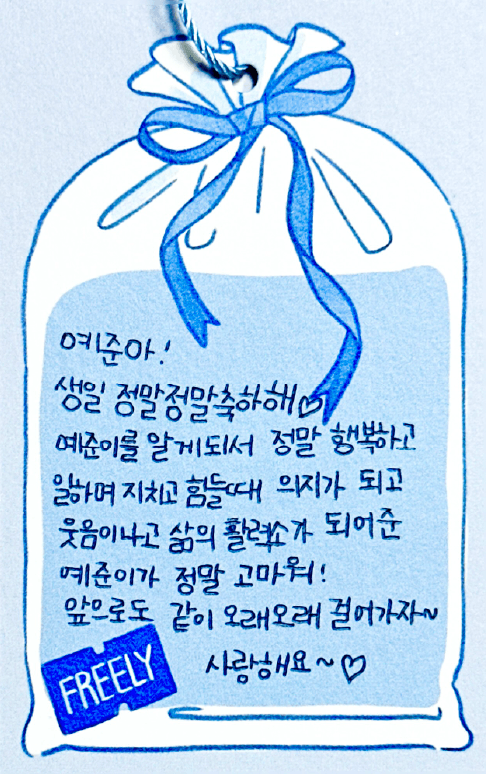 예준아!
생일 정말정말축하해♡
예준이를 알게되서 정말 행복하고
일하며 지치고 힘들때 의지가 되고
웃음이나고 삶의 활력소가 되어준
예준이가 정말 고마워!
앞으로도 같이 오래오래 걸어가자~
사랑해요~♡
FREELY